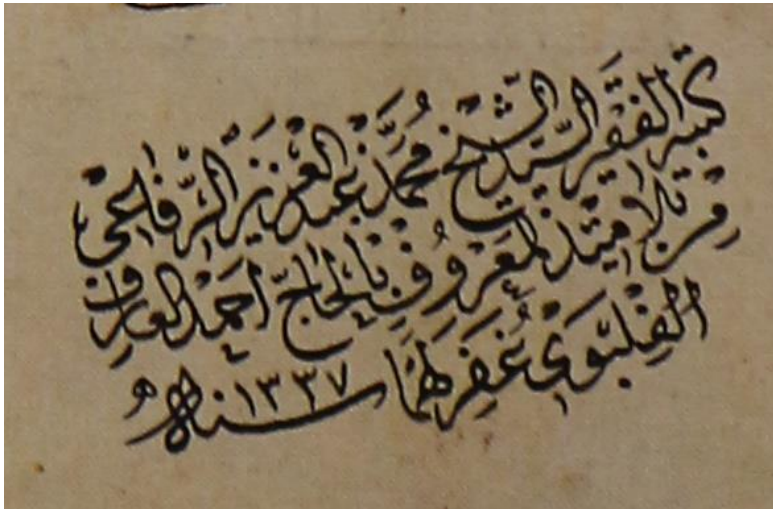 كتبه الفقير السيد الشيخ محمد عبد العزيز الرفاعي
من تلاميذ المعروف بالحاج أحمد العارف
الفلبوي غفر لهما سنة ١٣٣٧ هـ